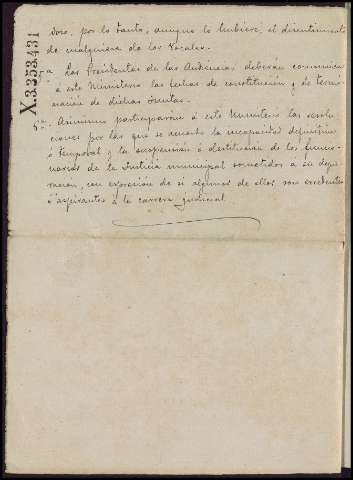 dose, por lo tanto, aunque lo hubiere, el disentimiento
de cualquiera de los Vocales.
X.3.353.431
4ª Los Presidentes de las Audiencias deberán comunicar
á este Ministerio las fechas de constitución y de termi-
nación de dichas Juntas.
5ª Asimismo participarán á este Ministerio las resolu-
ciones por las que se acuerde la incapacidad definitiva
ó temporal y la suspensión ó destitución de los funcio-
narios de la Justicia municipal sometidos á su depu-
ración, con expresión de si algunos de ellos son excedentes
ó aspirantes á la carrera judicial.